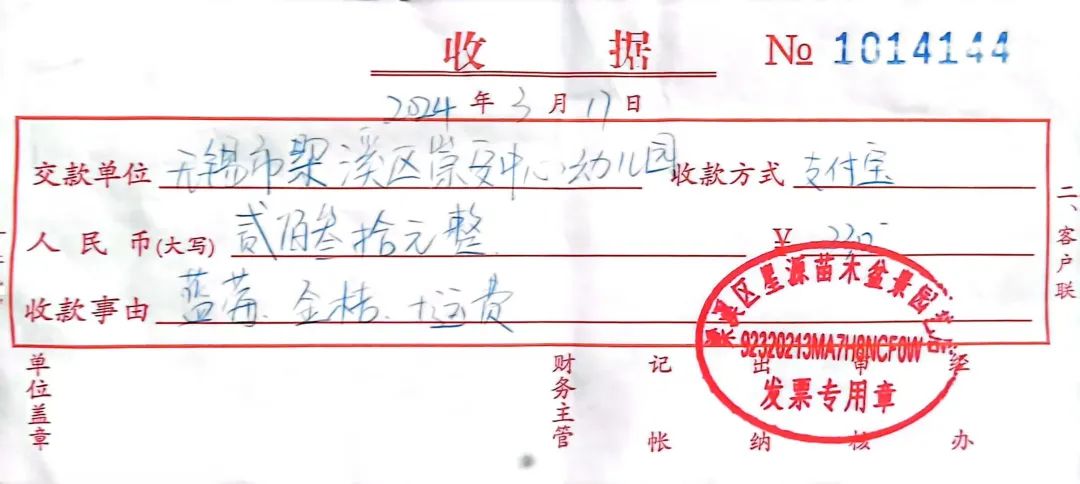 收 据 № 1014144
2024 年 3 月 17 日
交款单位 无锡市梁溪区崇安中心幼儿园 收款方式 支付宝
人民币(大写) 贰佰叁拾元整 ¥
收款事由 蓝莓、金桔、+运费
二、客户联
梁溪区星源苗木盆景园艺
92320213MA7H8NCF0W
发票专用章
单位盖章 财务主管 记帐 出纳 审核 经办